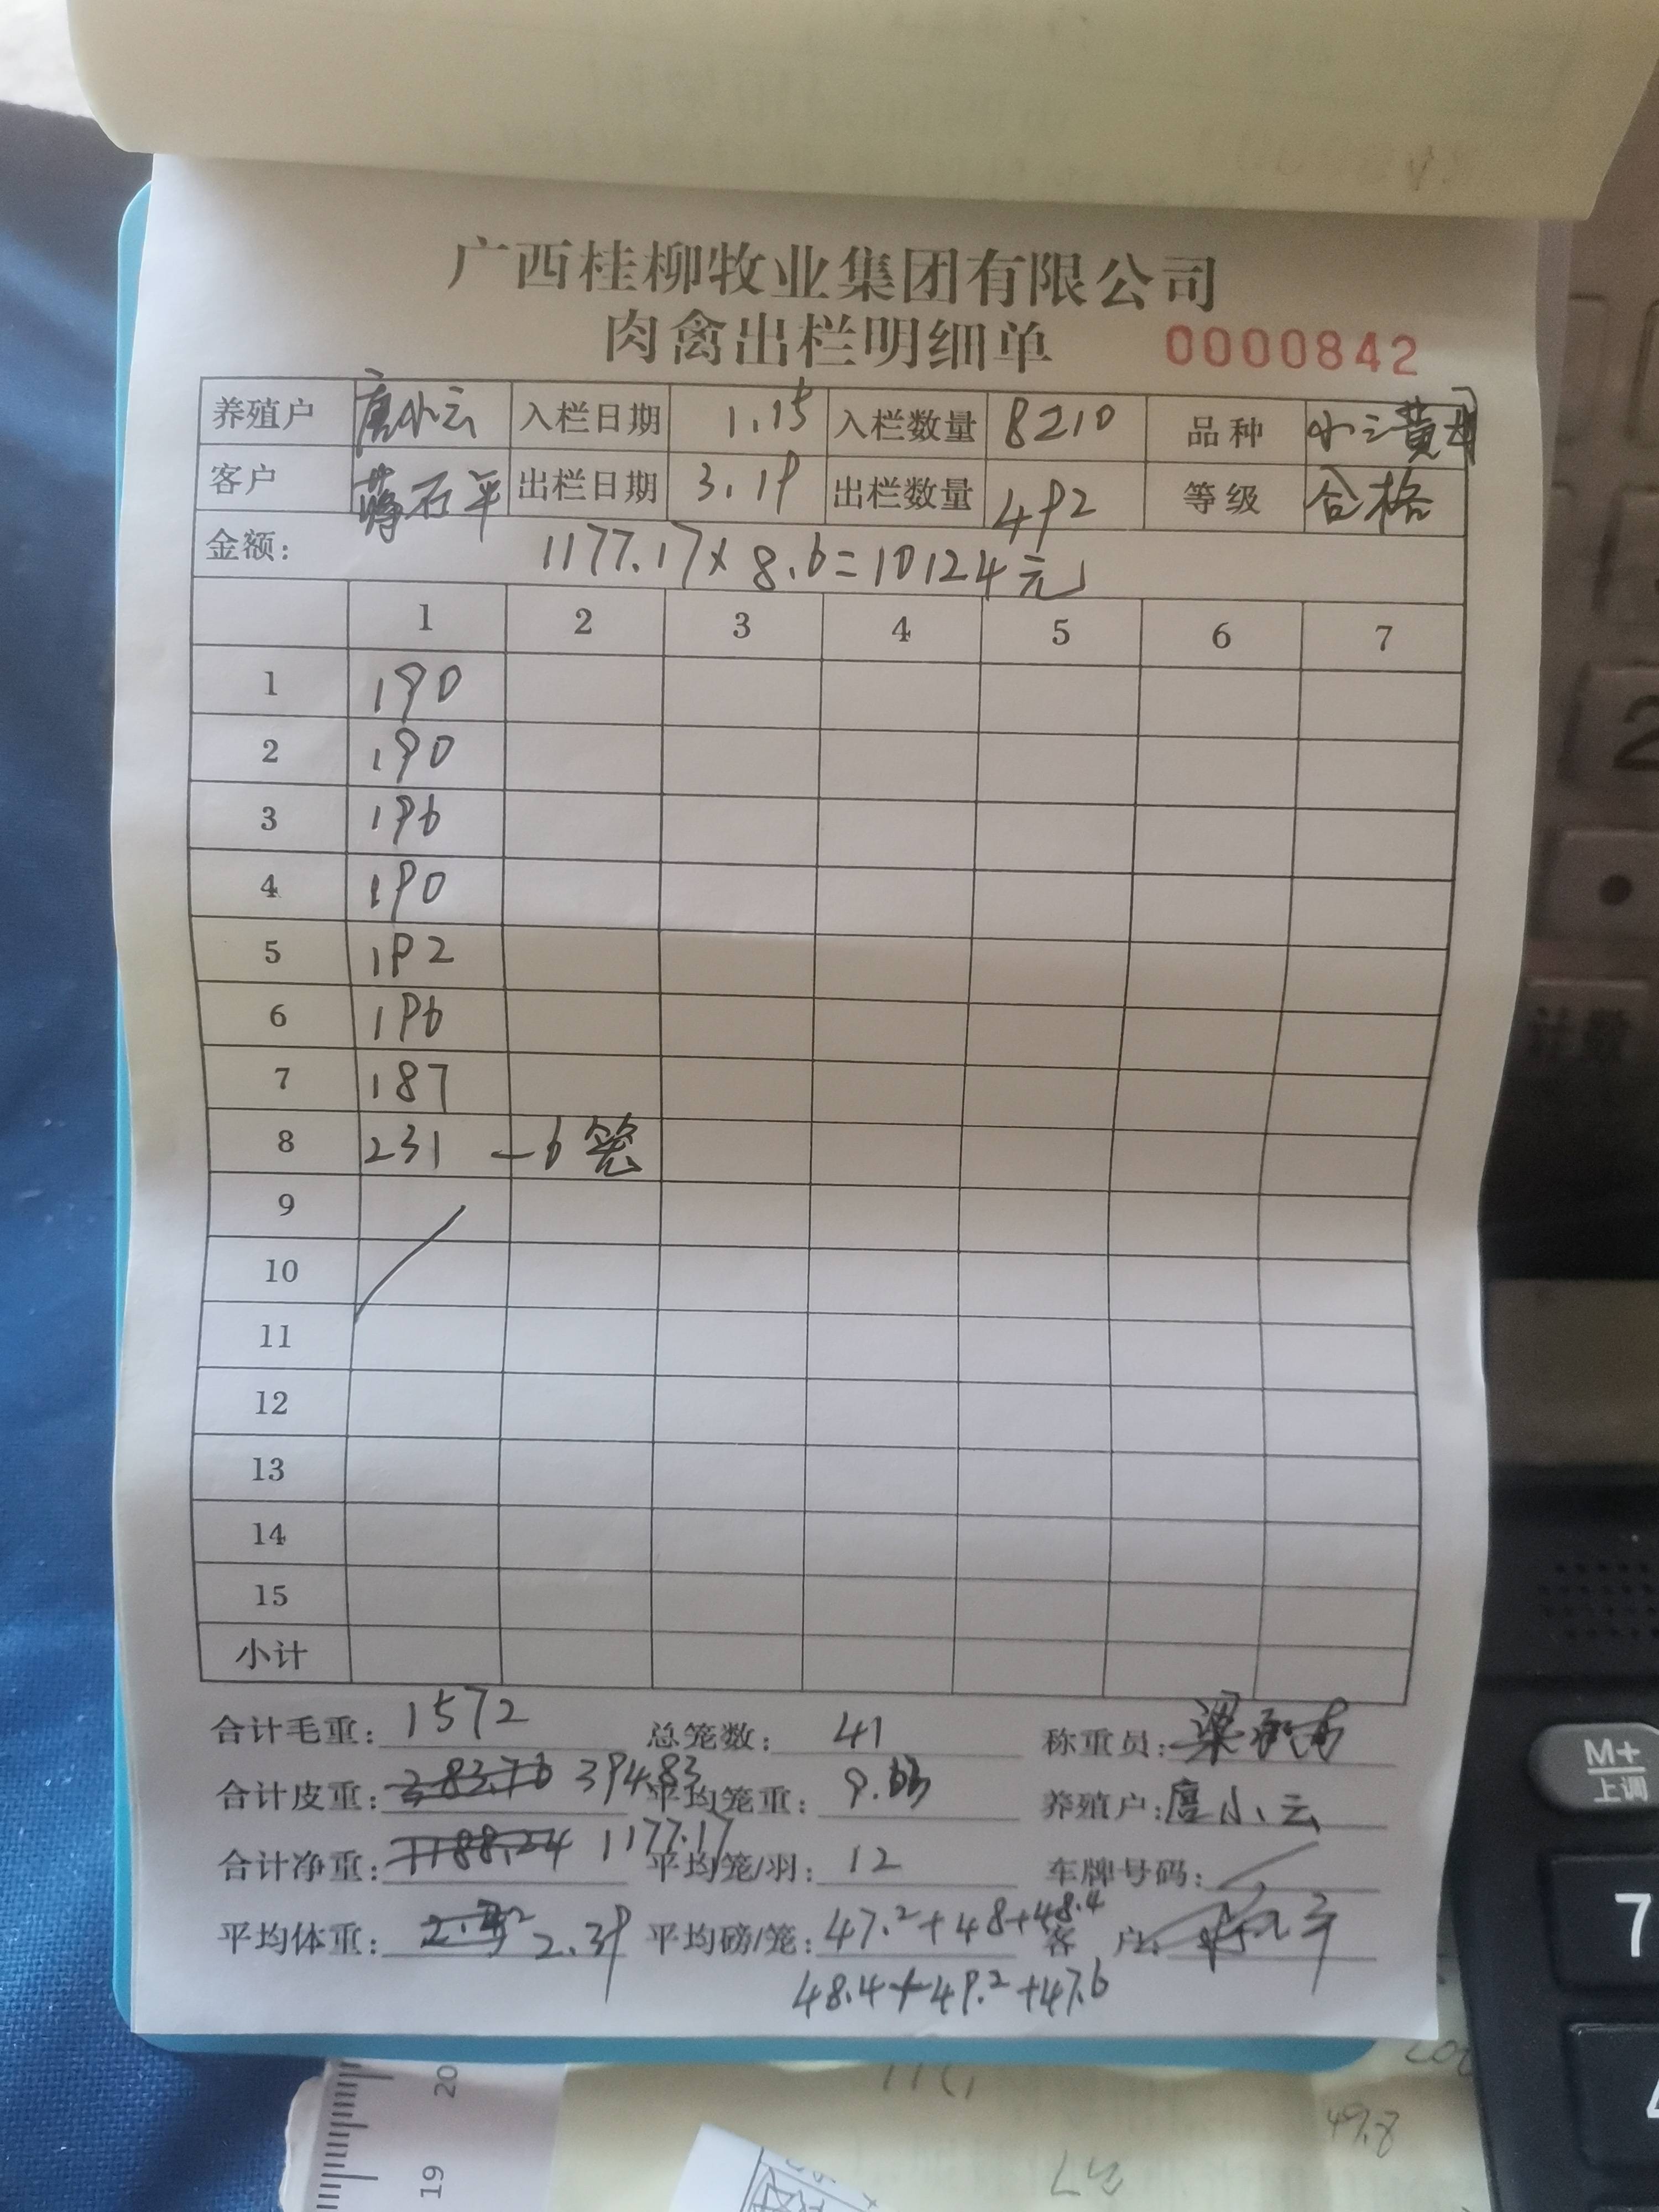 广西桂柳牧业集团有限公司
肉禽出栏明细单 0000842
养殖户 唐小云 入栏日期 1.15 入栏数量 8210 品种 小三黄母
客户 蒋石平 出栏日期 3.19 出栏数量 492 等级 合格
金额: 1177.17×8.6=10124元
1 2 3 4 5 6 7
1 190
2 190
3 196
4 190
5 192
6 196
7 187
8 231 —6笼
9
10
11
12
13
14
15
小计
合计毛重: 1572 总笼数: 41 称重员: 梁
合计皮重: 383.76 394.83 平均笼重: 9.63 养殖户: 唐小云
合计净重: 1188.24 1177.17 平均笼/羽: 12 车牌号码:
平均体重: 2.39 平均磅/笼: 47.2+48+48.4 客户:
48.4+49.2+47.6
2
计数
M+
上调
7
20
19
49.8